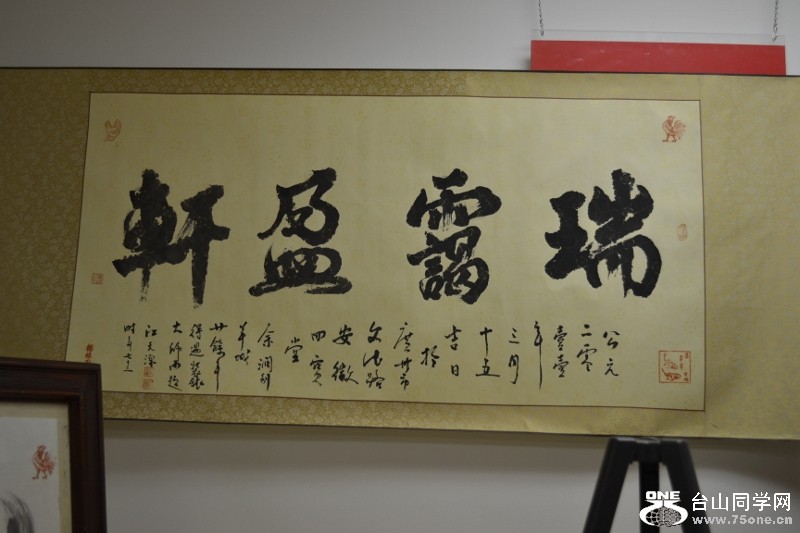 瑞靄盈軒
公元
二零
壹壹
年
三月
十五
吉日
於
廣州市
文德路
安徽
四寶
堂
余潤

廿餘年
得遇
大師西廷
江天
時年七十三
ONE 台山同学网
www.75one.cn